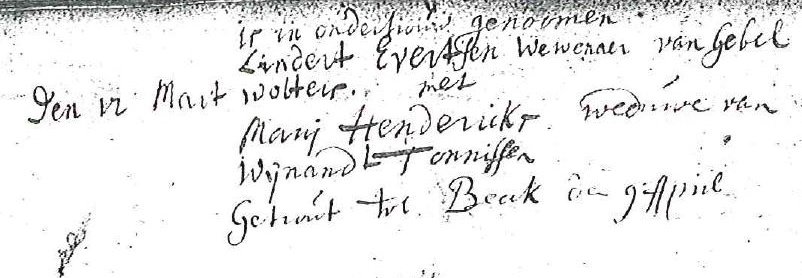 is in ondertrouw genoomen
Lindert Evertsen Wewenaer van Gebel
Den 12 Mart Wolters. met
Marij Henderickx weduwe van
Wijnandt Tonnissen
Getrout tot Beek den 9 April